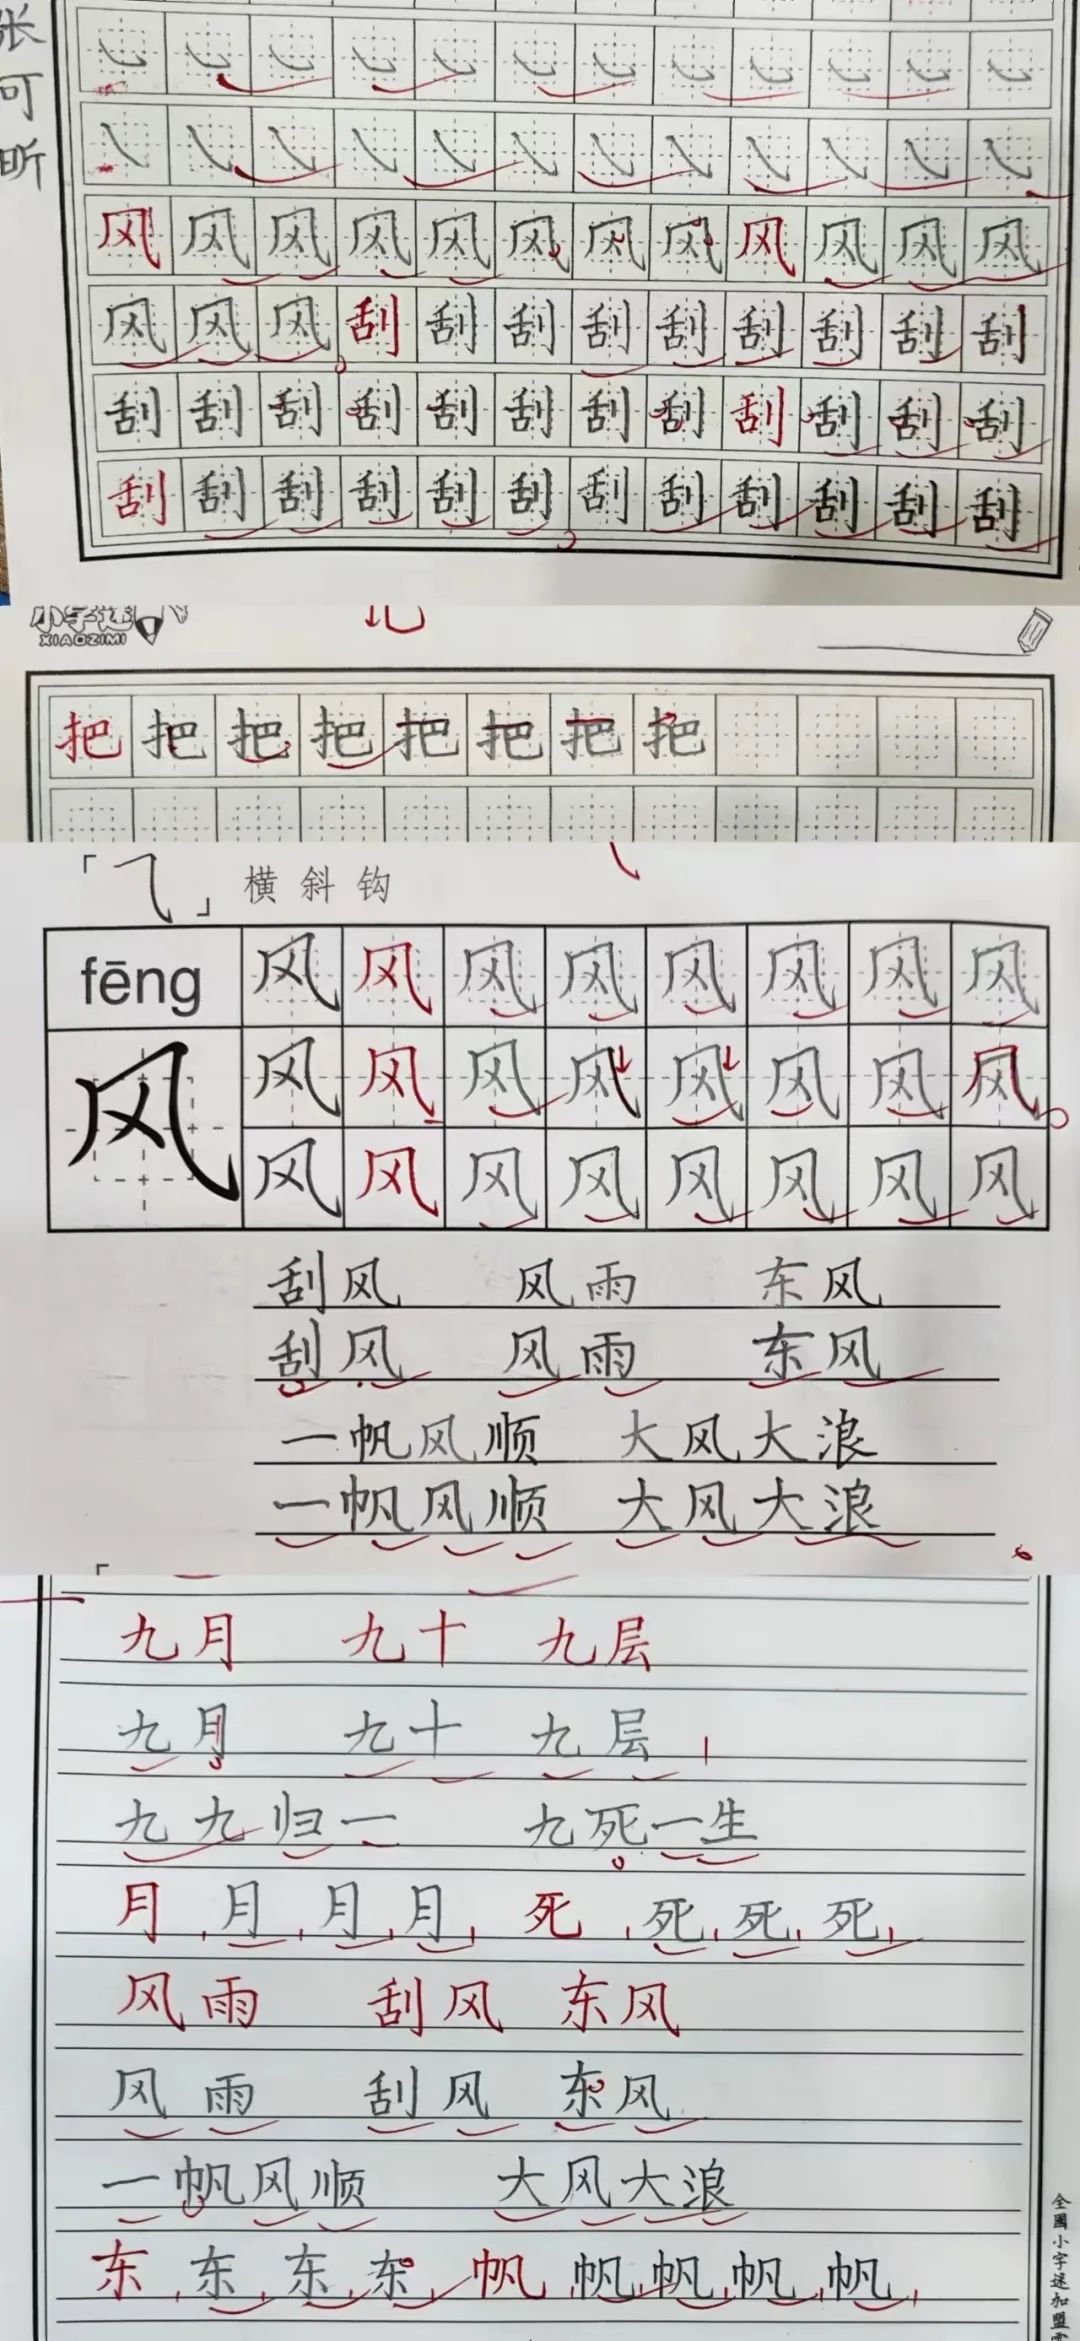 张可昕
风风风风风风风风风风风风
风风风刮刮刮刮刮刮刮刮刮
刮刮刮刮刮刮刮刮刮刮刮刮
刮刮刮刮刮刮刮刮刮刮刮刮
小字迷
XIAOZIMI
把把把把把把把把
「⺄」横斜钩
fēng 风风风风风风风风
风 风风风风风风风风
风风风风风风风风
刮风 风雨 东风
刮风 风雨 东风
一帆风顺 大风大浪
一帆风顺 大风大浪
九月 九十 九层
九月 九十 九层
九九归一 九死一生
月月月月 死死死死
风雨 刮风 东风
风雨 刮风 东风
一帆风顺 大风大浪
东东东东 帆帆帆帆帆
全國小字迷加盟